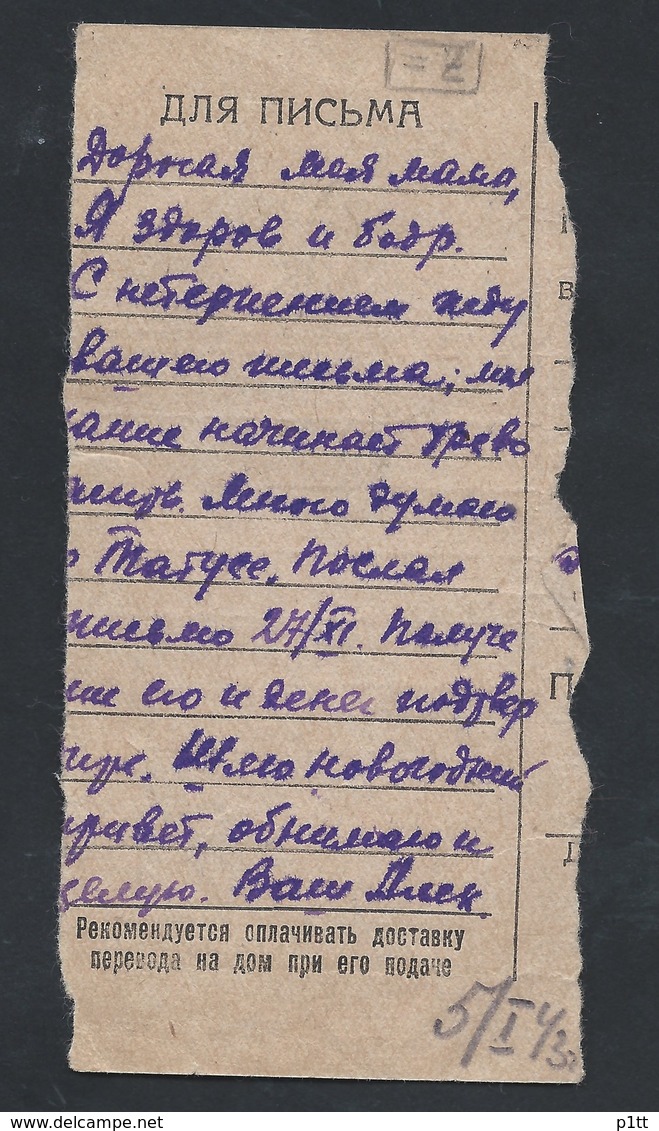 = Z
ДЛЯ ПИСЬМА
Дорогая моя мама,
Я здоров и бодр.
С нетерпением жду
вашего письма; мол
чание начинает трево
жить. Много думаю
о Татусе. Послал
письмо 27/XI. Получе
ние его и денег подтвер
дите. Шлю новогодний
привет, обнимаю и
целую. Ваш Алек
Рекомендуется оплачивать доставку
перевода на дом при его подаче
5/I
В
П
Д
p1tt